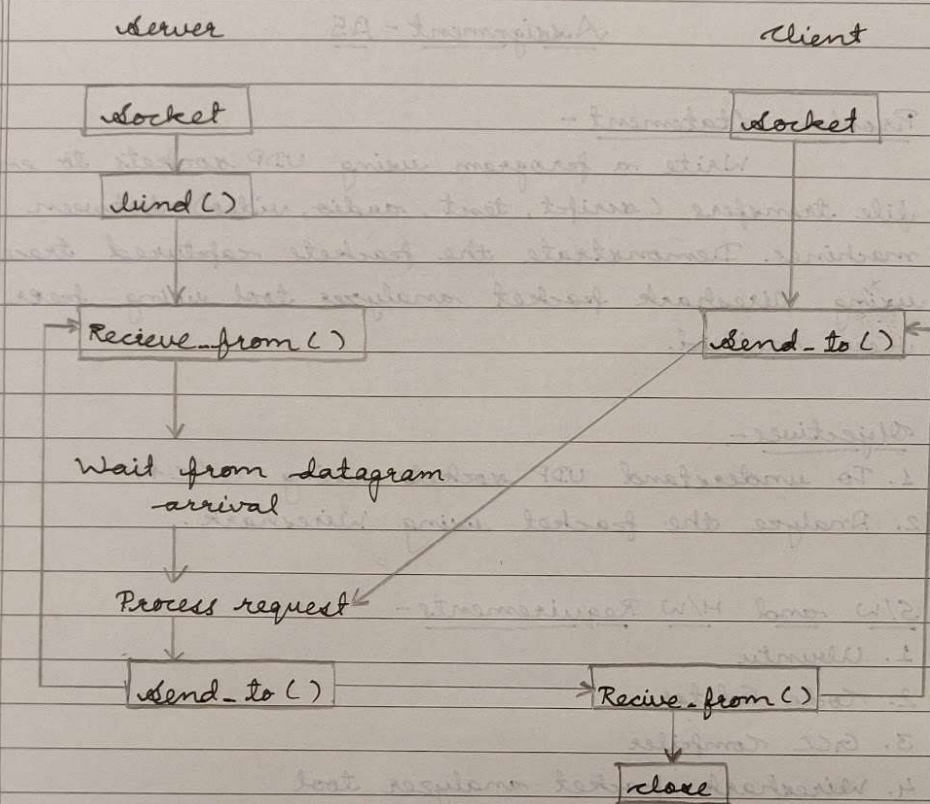 Server Client
Socket Socket
bind()
Recieve_from() Send_to()
Wait from datagram
arrival
Process request
Send_to() Recive_from()
close